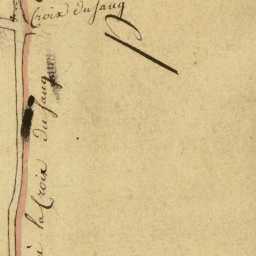 Croix du Sauq
à la Croix du Sauq